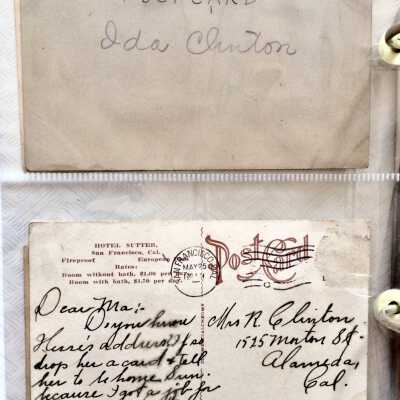 POST CARD
Ida Clinton
HOTEL SUTTER,
San Francisco, Cal.
Fireproof European
Rates:
Room without bath, $1.00 per
Room with bath, $1.50 per day.
SAN FRANCISCO, CAL.
MAY 25
Post Card
Dear Ma:-
Do you know
address? If so
drop her a card & tell
her to be home Sun.
because I got a job for
Mrs R. Clinton
1525 Morton St.
Alameda,
Cal.